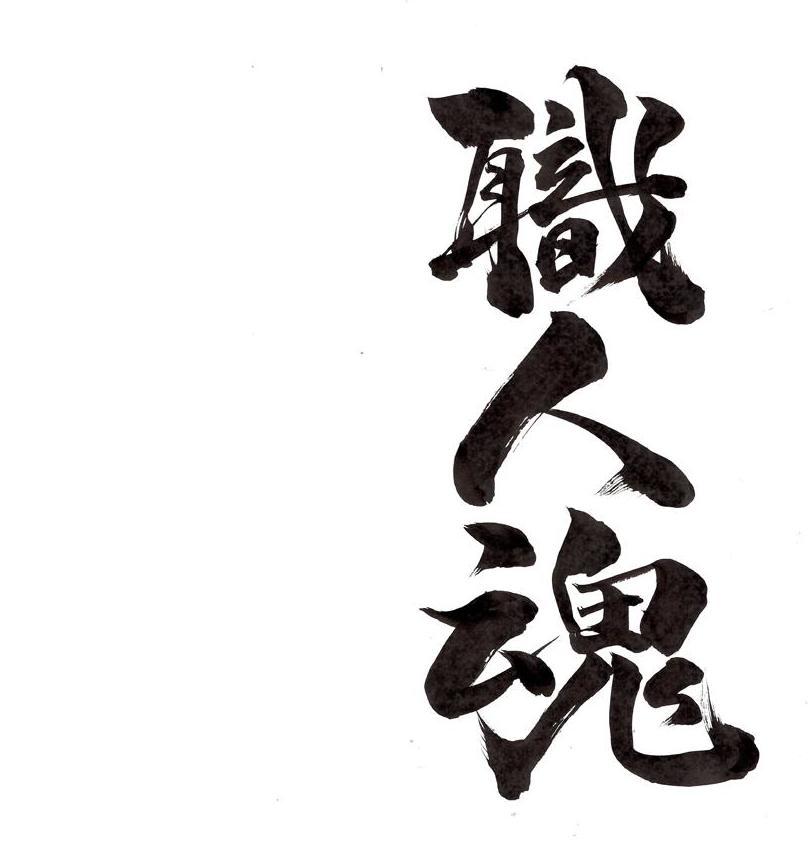 職人魂